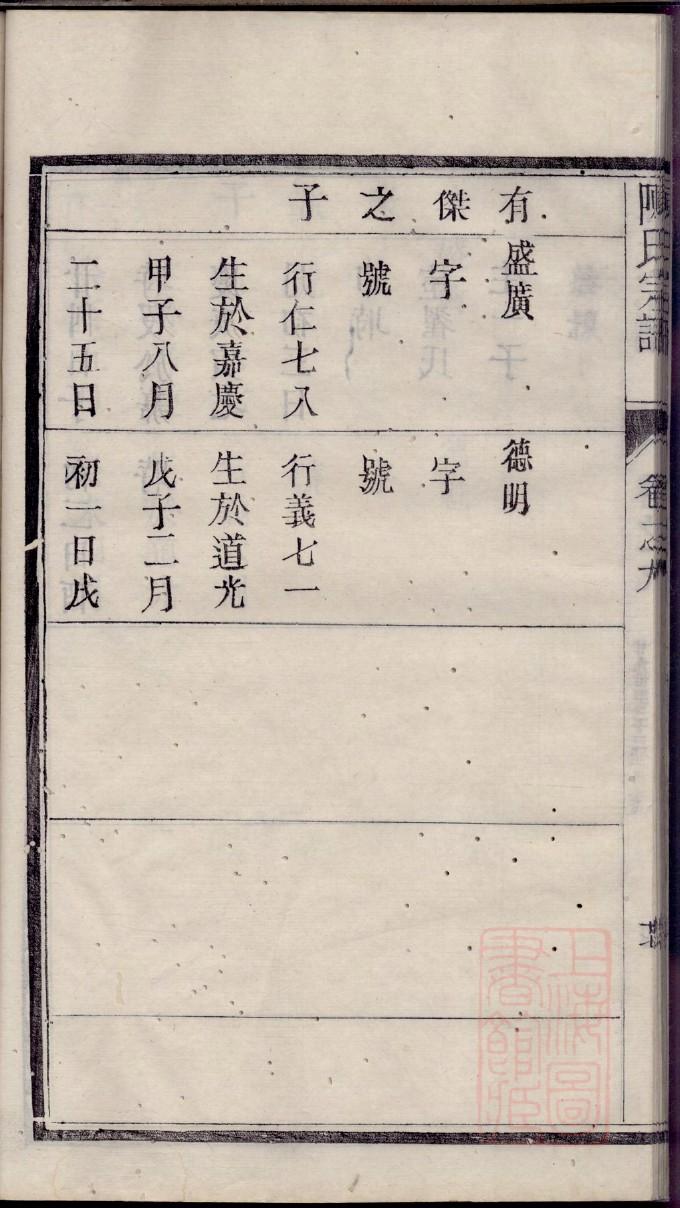 陳氏宗譜
卷之九
有傑之子
盛廣
字
號
行仁七八
生於嘉慶
甲子八月
二十五日
德明
字
號
行義七一
生於道光
戊子二月
初一日戌
上海圖書館藏